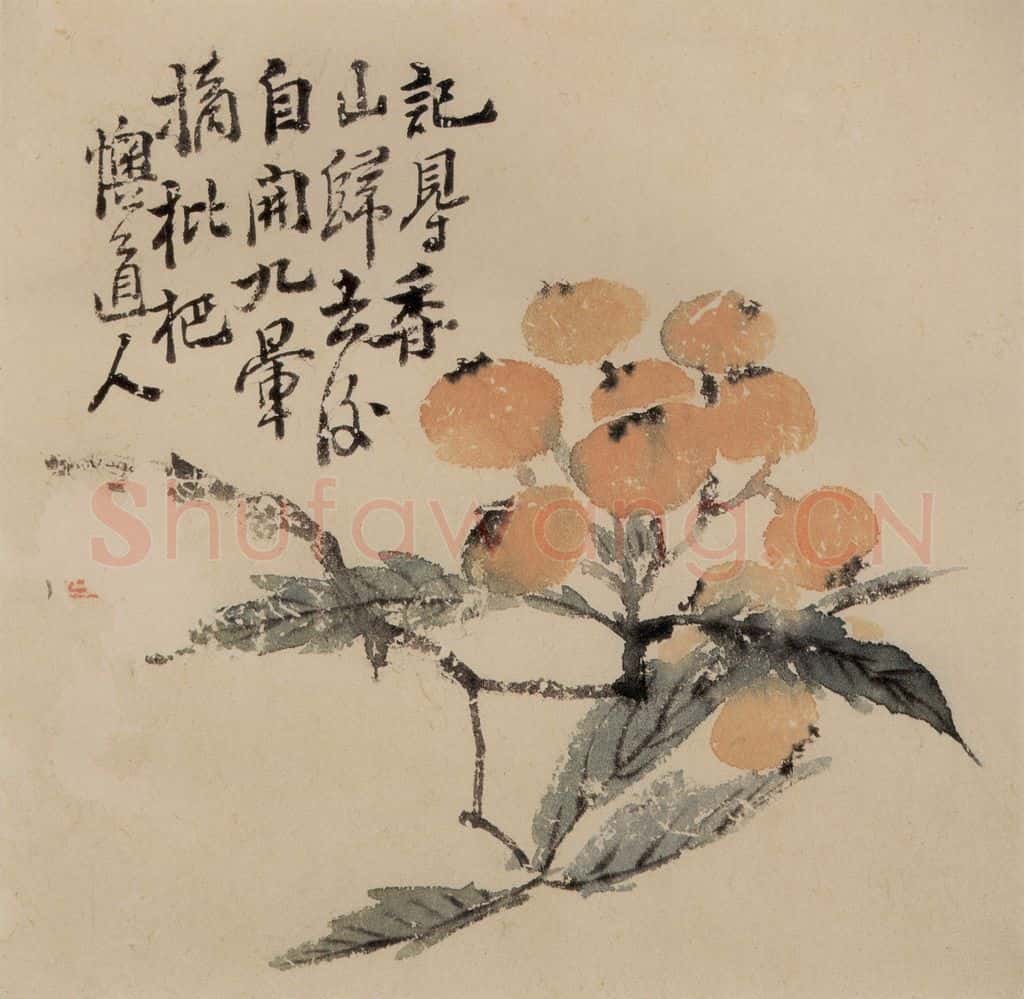 記㝵香
山歸去後
自開九暈
摘枇杷
懊道人
Shufawang.CN